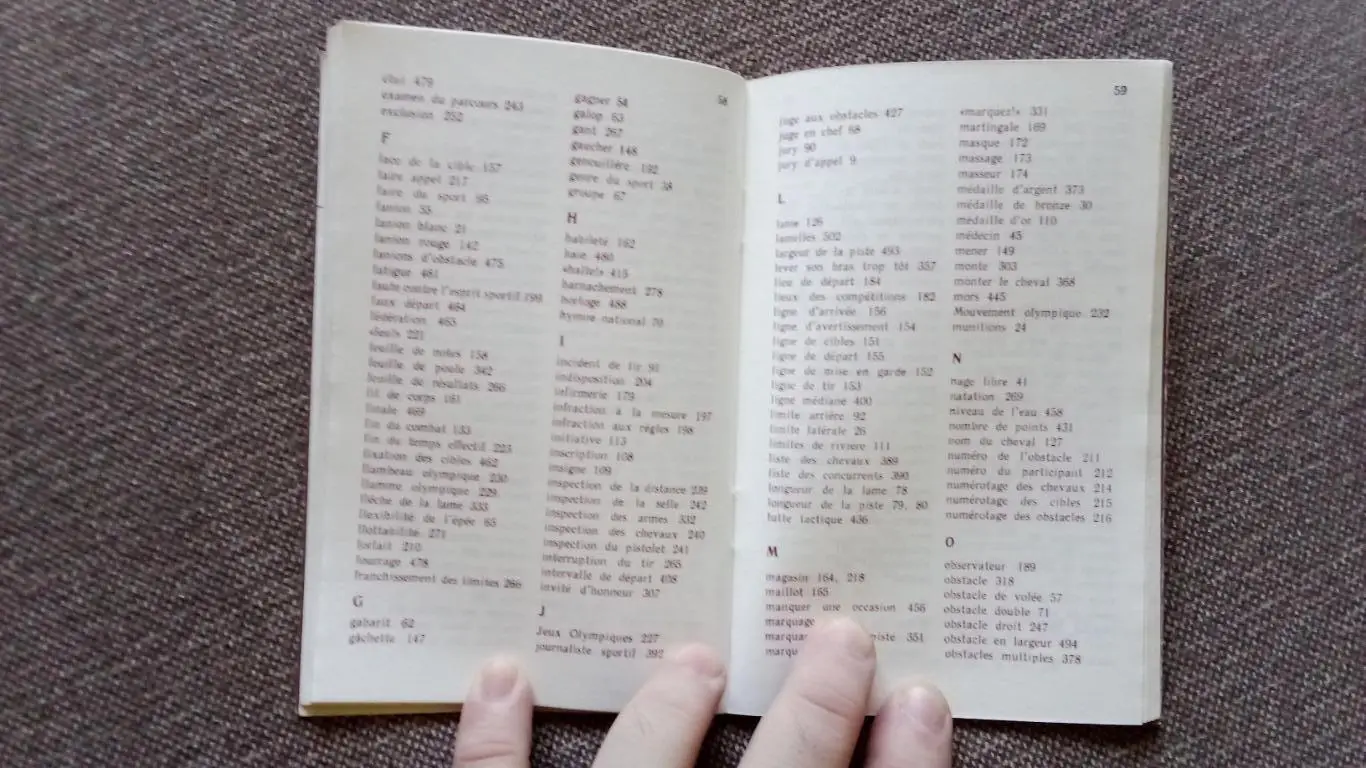 étui 479
examen du parcours 243
exclusion 252
F
face de la cible 157
faire appel 217
faire du sport 95
fanion 55
fanion blanc 21
fanion rouge 142
fanions d'obstacle 475
fatigue 461
faute contre l'esprit sportif 199
faux départ 464
fédération 465
«feu!» 221
feuille de notes 158
feuille de poule 342
feuille de résultats 266
fil de corps 161
finale 469
fin du combat 133
fin du temps effectif 223
fixation des cibles 462
flambeau olympique 230
flamme olympique 229
flèche de la lame 333
flexibilité de l'épée 65
flottabilité 271
forfait 210
fourrage 478
franchissement des limites 266
G
gabarit 62
gâchette 147
58
gagner 54
galop 63
gant 267
gaucher 148
genouillère 192
genre du sport 38
groupe 67
H
habileté 162
haie 480
«halte!» 415
harnachement 278
horloge 488
hymne national 70
I
incident de tir 91
indisposition 204
infirmerie 179
infraction à la mesure 197
infraction aux règles 198
initiative 113
inscription 108
insigne 109
inspection de la distance 239
inspection de la selle 242
inspection des armes 332
inspection des chevaux 240
inspection du pistolet 241
interruption du tir 265
intervalle de départ 408
invité d'honneur 307
J
Jeux Olympiques 227
journaliste sportif 392
59
juge aux obstacles 427
juge en chef 68
jury 90
jury d'appel 9
L
lame 126
lamelles 502
largeur de la piste 493
lever son bras trop tôt 357
lieu de départ 184
lieux des compétitions 182
ligne d'arrivée 156
ligne d'avertissement 154
ligne de cibles 151
ligne de départ 155
ligne de mise en garde 152
ligne de tir 153
ligne médiane 400
limite arrière 92
limite latérale 26
limites de rivière 111
liste des chevaux 389
liste des concurrents 390
longueur de la lame 78
longueur de la piste 79, 80
lutte tactique 436
M
magasin 164, 218
maillot 165
manquer une occasion 456
marquage
marqua piste 351
marqu
«marquez!» 331
martingale 169
masque 172
massage 173
masseur 174
médaille d'argent 373
médaille de bronze 30
médaille d'or 110
médecin 45
mener 149
monte 303
monter le cheval 368
mors 445
Mouvement olympique 232
munitions 24
N
nage libre 41
natation 269
niveau de l'eau 458
nombre de points 431
nom du cheval 127
numéro de l'obstacle 211
numéro du participant 212
numérotage des chevaux 214
numérotage des cibles 215
numérotage des obstacles 216
O
observateur 189
obstacle 318
obstacle de volée 57
obstacle double 71
obstacle droit 247
obstacle en largeur 494
obstacles multiples 378